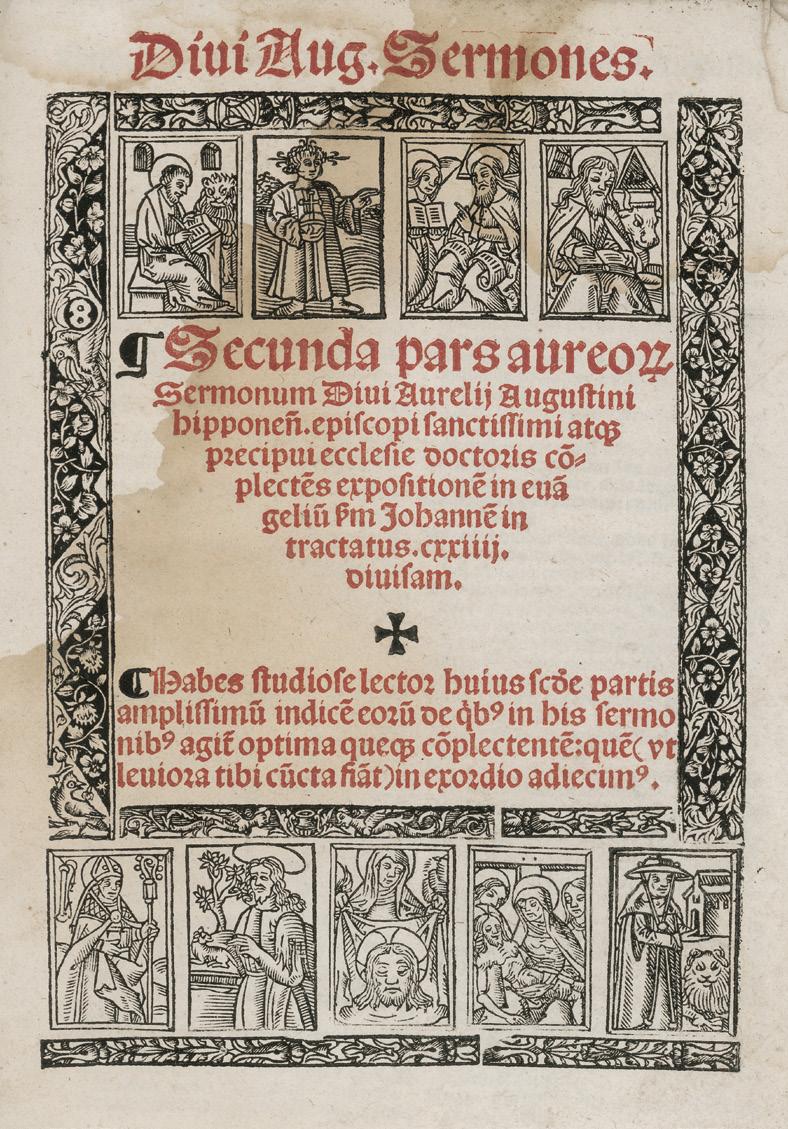 Diui Aug. Sermones.
¶ Secunda pars aureoꝝ
Sermonum Diui Aurelij Augustini
hipponeñ. episcopi sanctissimi atqꝫ
precipui ecclesie doctoris cō-
plectēs expositionē in euā
geliū ẜm Johannē in
tractatus. cxxiiij.
diuisam.
¶ Habes studiose lector huius scd̄e partis
amplissimū indicē eorū de q̇bꝰ in his sermo
nibꝰ agit᷑ optima queqꝫ cōplectentē: quē( vt
leuiora tibi cūcta fiāt) in exordio adiecimꝰ.